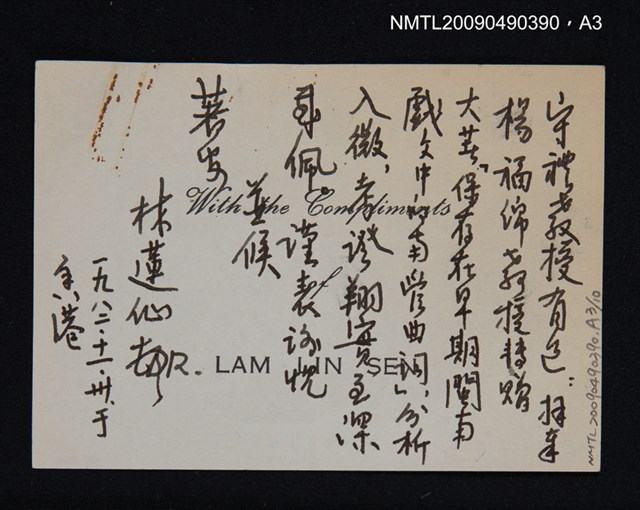 NMTL20090490390,A3
守禮教授有道:拜奉
楊福綿教授轉贈
大著"保存在早期閩南
戲文中的南管曲詞",分析
入微,考證翔實,至深
感佩。謹表謝忱
並候
著安
林蓮仙
一九八二.十一.卅.于
香港
With the Compliments
of
DR. LAM LIN SEN
NMTL20090490390.A3/10